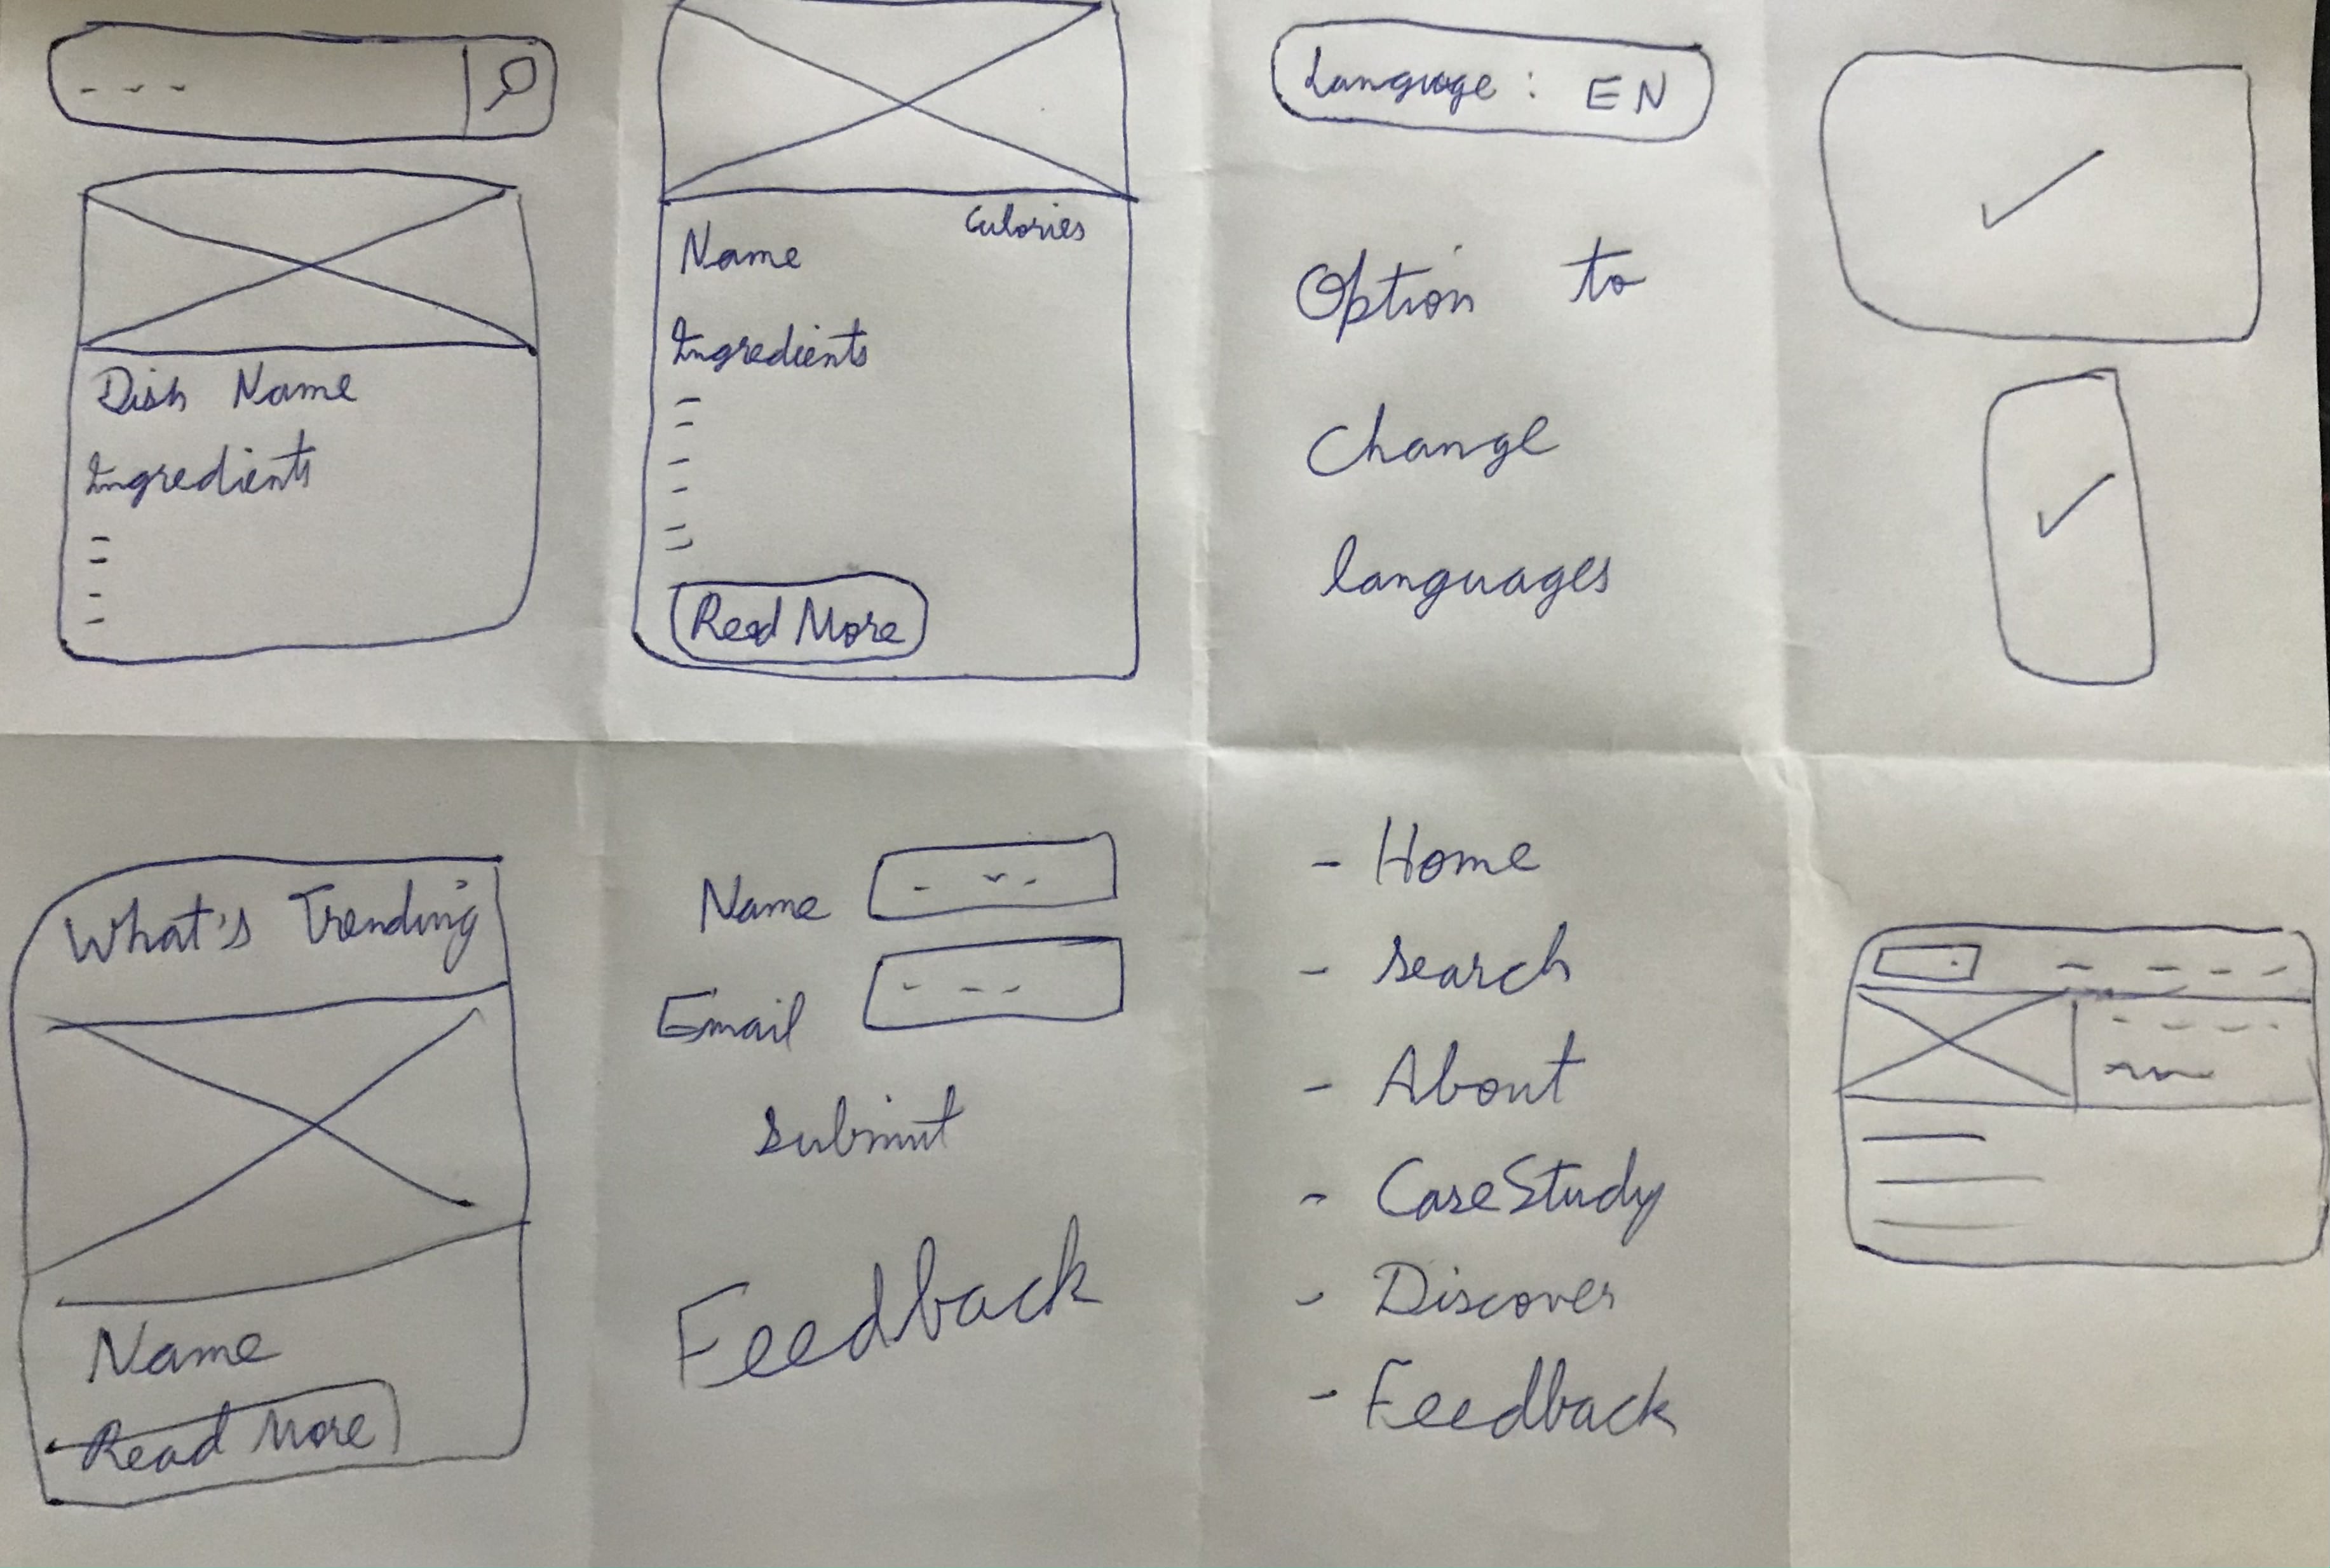 Dish Name
Ingredients
Calories
Name
Ingredients
Read More
Language : EN
Option to
change
languages
What's Trending
Name
Read More
Name
Email
submit
Feedback
- Home
- search
- About
- CaseStudy
- Discover
- Feedback